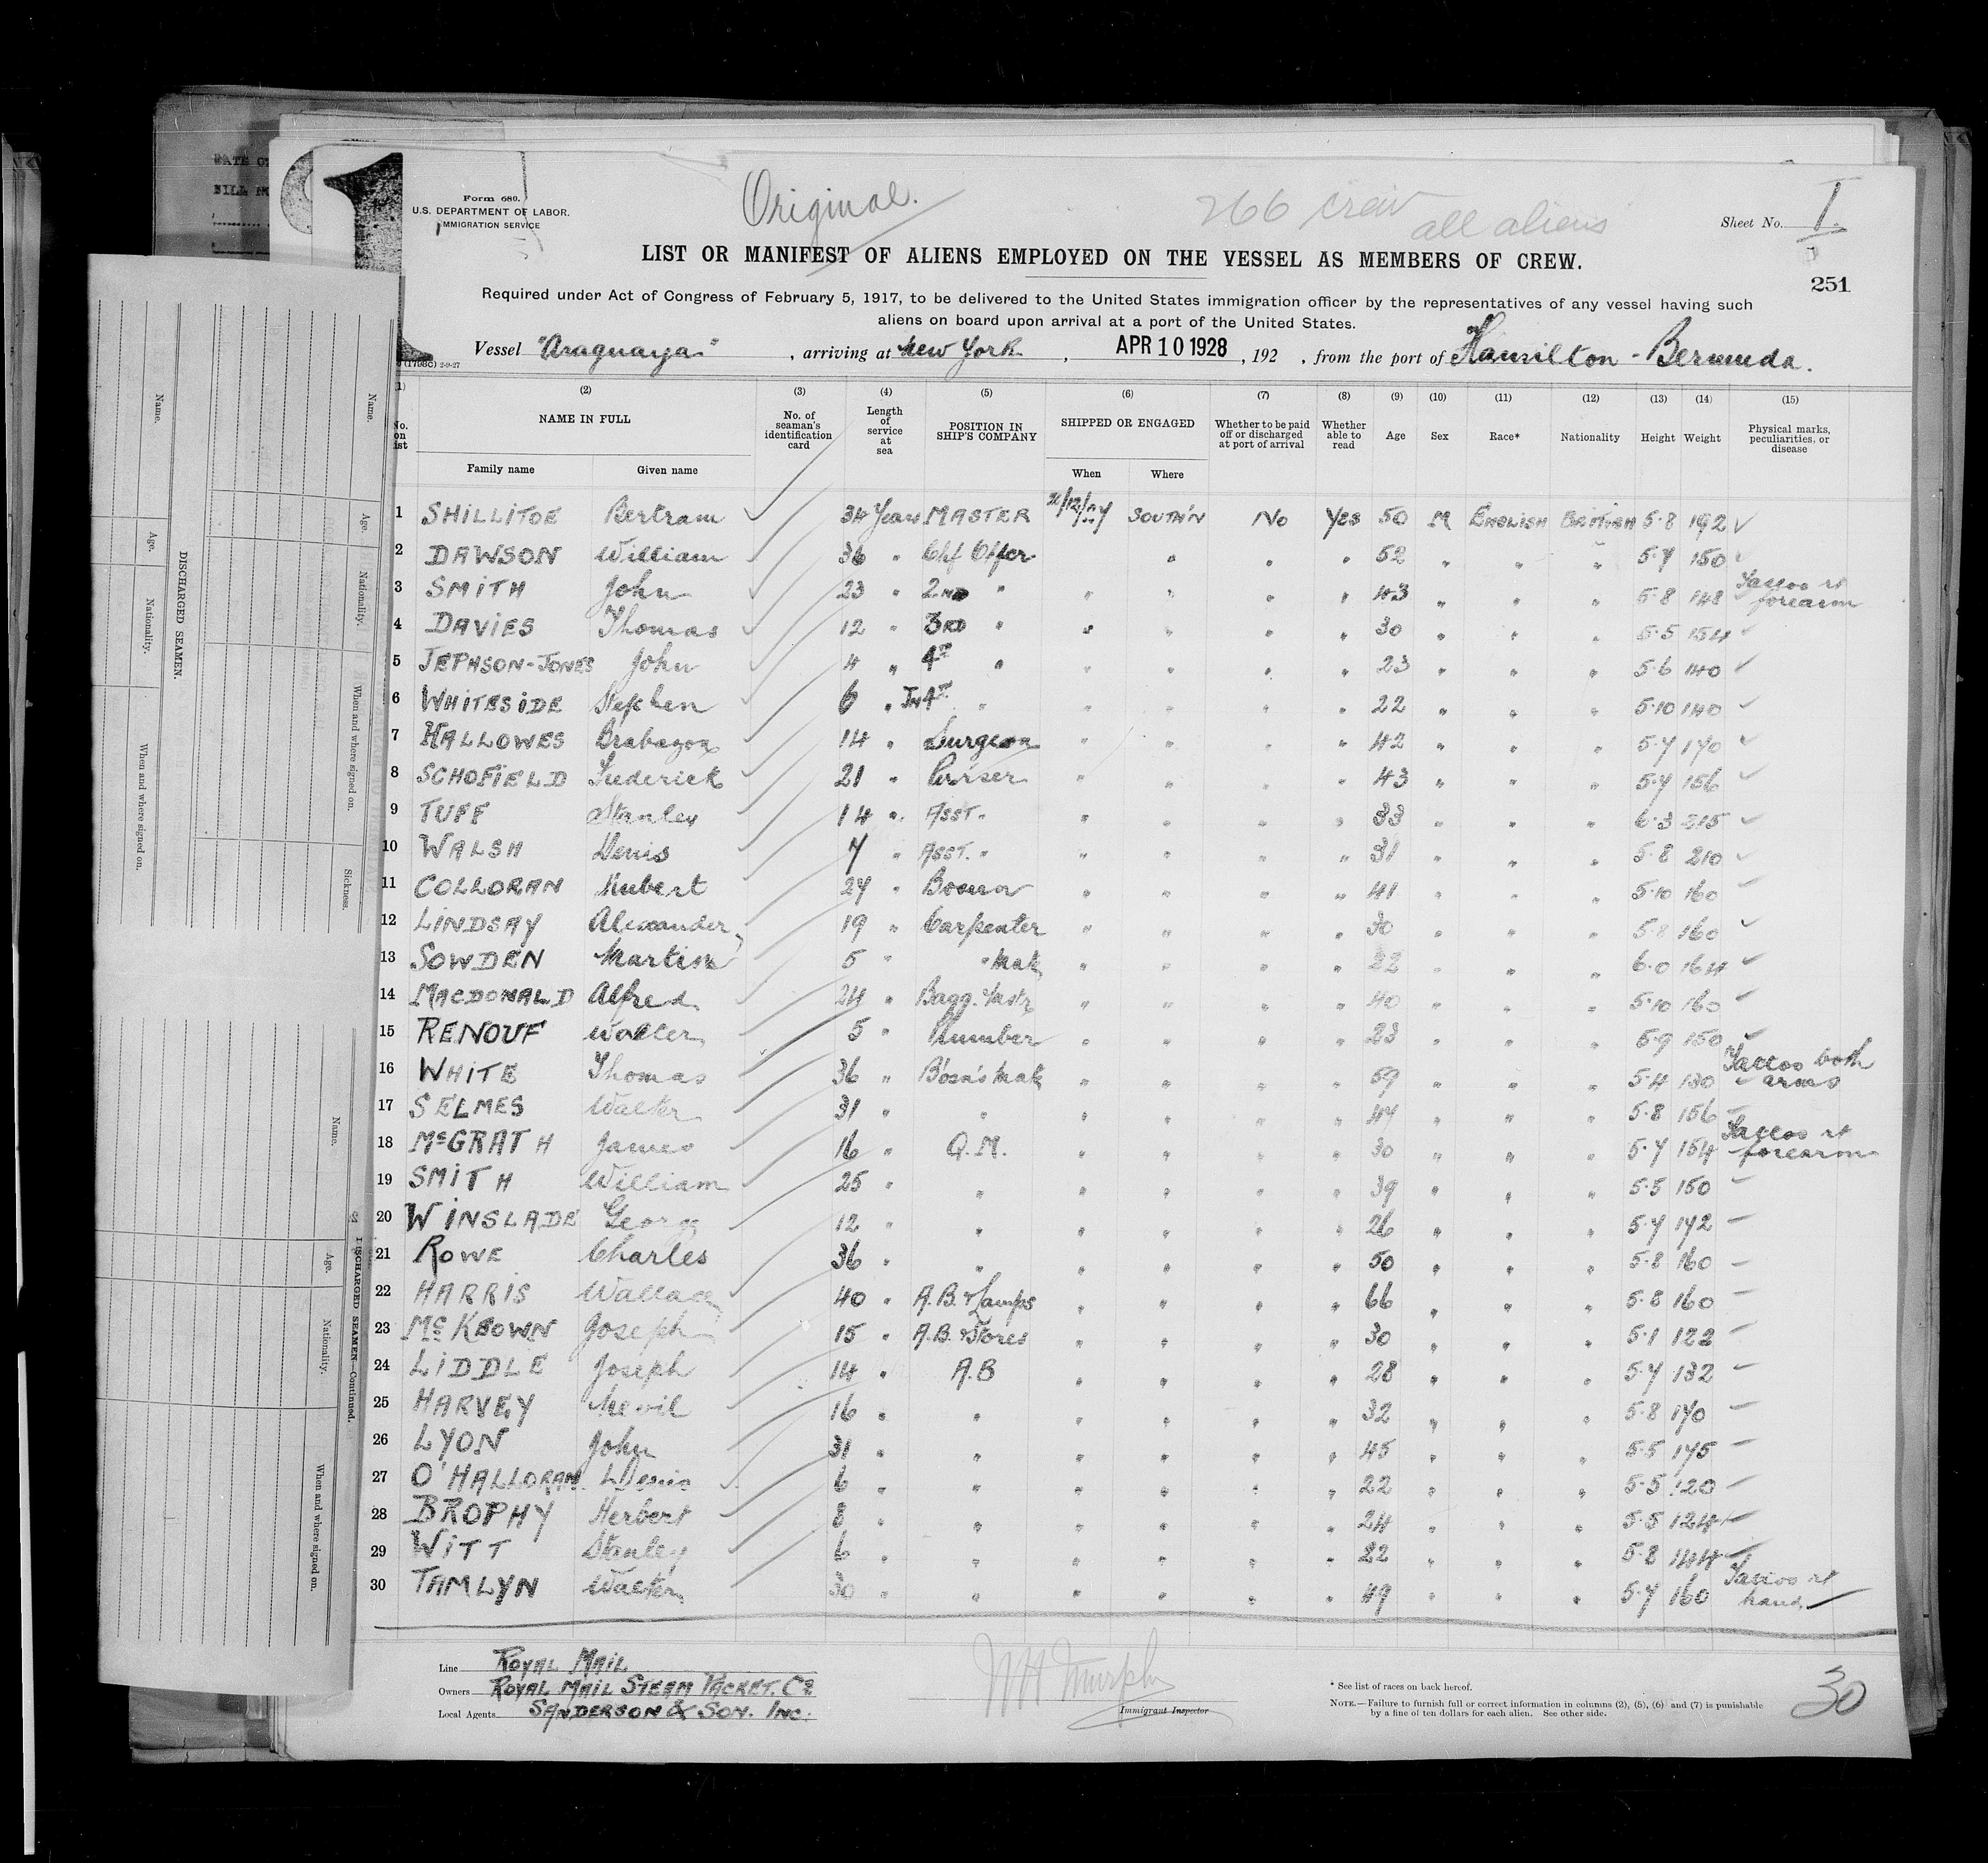 Form 680.
U.S. DEPARTMENT OF LABOR.
IMMIGRATION SERVICE
Original.
266 crew
all aliens
Sheet No. 1
251
LIST OR MANIFEST OF ALIENS EMPLOYED ON THE VESSEL AS MEMBERS OF CREW.
Required under Act of Congress of February 5, 1917, to be delivered to the United States immigration officer by the representatives of any vessel having such
aliens on board upon arrival at a port of the United States.
Vessel "Araguaya", arriving at New York, APR 10 1928, 192 , from the port of Hamilton - Bermuda.
(1) (2) (3) (4) (5) (6) (7) (8) (9) (10) (11) (12) (13) (14) (15)
No. on list NAME IN FULL Family name Given name No. of seaman's identification card Length of service at sea POSITION IN SHIP'S COMPANY SHIPPED OR ENGAGED When Where Whether to be paid off or discharged at port of arrival Whether able to read Age Sex Race* Nationality Height Weight Physical marks, peculiarities, or disease
1 SHILLITOE Bertram 34 Years MASTER SOUTH'N No Yes 50 M ENGLISH BRITISH 5.8 192
2 DAWSON William 36 " Chf Offcr " " " 52 " " " 5.7 150
3 SMITH John 23 " 2ND " " " " " 43 " " " 5.8 148 Tattoo rt forearm
4 DAVIES Thomas 12 " 3RD " " " " " 30 " " " 5.5 154
5 JEPHSON-JONES John 4 " 4TH " " " " " 23 " " " 5.6 140
6 WHITESIDE Stephen 6 " Jn 4TH " " " " " 22 " " " 5.10 140
7 HALLOWES Brabazon 14 " Surgeon " " " " 42 " " " 5.7 170
8 SCHOFIELD Frederick 21 " Purser " " " " 43 " " " 5.7 156
9 TUFF Stanley 14 " ASST. " " " " " 33 " " " 6.3 215
10 WALSH Denis 7 " ASST. " " " " " 31 " " " 5.8 210
11 COLLORAN Hubert 27 " Bosun " " " " 41 " " " 5.10 160
12 LINDSAY Alexander 19 " Carpenter " " " " 30 " " " 5.8 160
13 SOWDEN Martin 5 " " Mate " " " " 22 " " " 6.0 164
14 MACDONALD Alfred 24 " Bagg. Mastr " " " " 40 " " " 5.10 160
15 RENOUF Walter 5 " Plumber " " " " 23 " " " 5.9 150
16 WHITE Thomas 36 " B'osn's Mate " " " " 59 " " " 5.4 130 Tattoo both arms
17 SELMES Walter 31 " " " " " " 47 " " " 5.8 156
18 McGRATH James 16 " Q.M. " " " " 30 " " " 5.7 154 Tattoo rt forearm
19 SMITH William 25 " " " " " " 39 " " " 5.5 150
20 WINSLADE George 12 " " " " " " 26 " " " 5.7 142
21 ROWE Charles 36 " " " " " " 50 " " " 5.8 160
22 HARRIS Wallace 40 " A.B. & Lamps " " " " 66 " " " 5.8 160
23 McKEOWN Joseph 15 " A.B. & Stores " " " " 30 " " " 5.1 122
24 LIDDLE Joseph 14 " A.B " " " " 28 " " " 5.7 132
25 HARVEY 16 " " " " " " 32 " " " 5.8 170
26 LYON John 31 " " " " " " 45 " " " 5.5 175
27 O'HALLORAN Denis 6 " " " " " " 22 " " " 5.5 120
28 BROPHY Herbert 8 " " " " " " 24 " " " 5.5 124
29 WITT Stanley 6 " " " " " " 22 " " " 5.8 144
30 TAMLYN Walter 30 " " " " " " 49 " " " 5.7 160 Tattoo rt hand
Line ROYAL MAIL
Owners ROYAL MAIL STEAM PACKET. Co
Local Agents SANDERSON & SON. INC.
Immigrant Inspector
* See list of races on back hereof.
NOTE.—Failure to furnish full or correct information in columns (2), (5), (6) and (7) is punishable
by a fine of ten dollars for each alien. See other side.
30
DISCHARGED SEAMEN.
Name. Age. Nationality. When and where signed on.
Name. Age. Nationality. When and where signed on. Sickness.
DISCHARGED SEAMEN—Continued.
Name. Age. Nationality. When and where signed on.